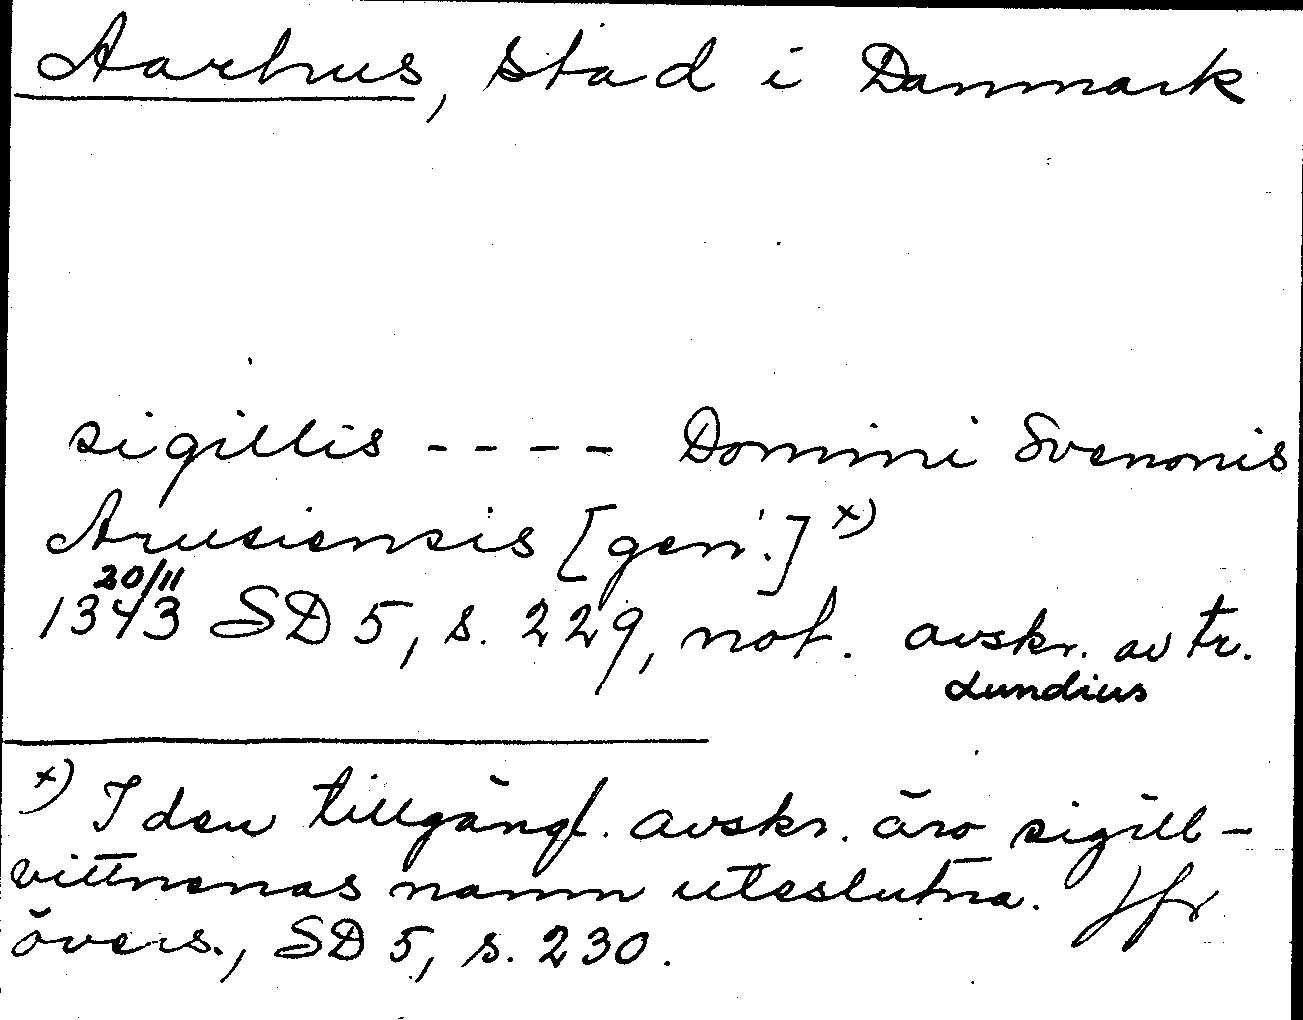 Aarhus, stad i Danmark
sigillis ---- Domini Svenonis
Arusiensis [gen.] x)
20/11
1343 SD 5, s. 229, not. avskr. av tr.
Lundius
x) I den tillgängl. avskr. äro sigill-
vittnenas namn uteslutna. Jfr
övers., SD 5, s. 230.